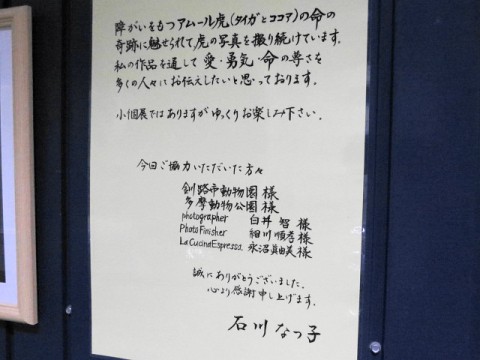 障がいをもつアムール虎(タイガとココア)の命の
奇跡に魅せられて、虎の写真を撮り続けています。
私の作品を通して 愛・勇気・命の尊さを
多くの人々にお伝えしたいと思っております。
小個展ではありますがゆっくりお楽しみ下さい。
今回ご協力いただいた方々
釧路市動物園 様
多摩動物公園 様
photographer 白井 智 様
PhotoFinisher 細川 順 様
La Cucina Espresso. 永沼 真由美 様
誠にありがとうございました。
心より感謝申し上げます。
石川 なつ子